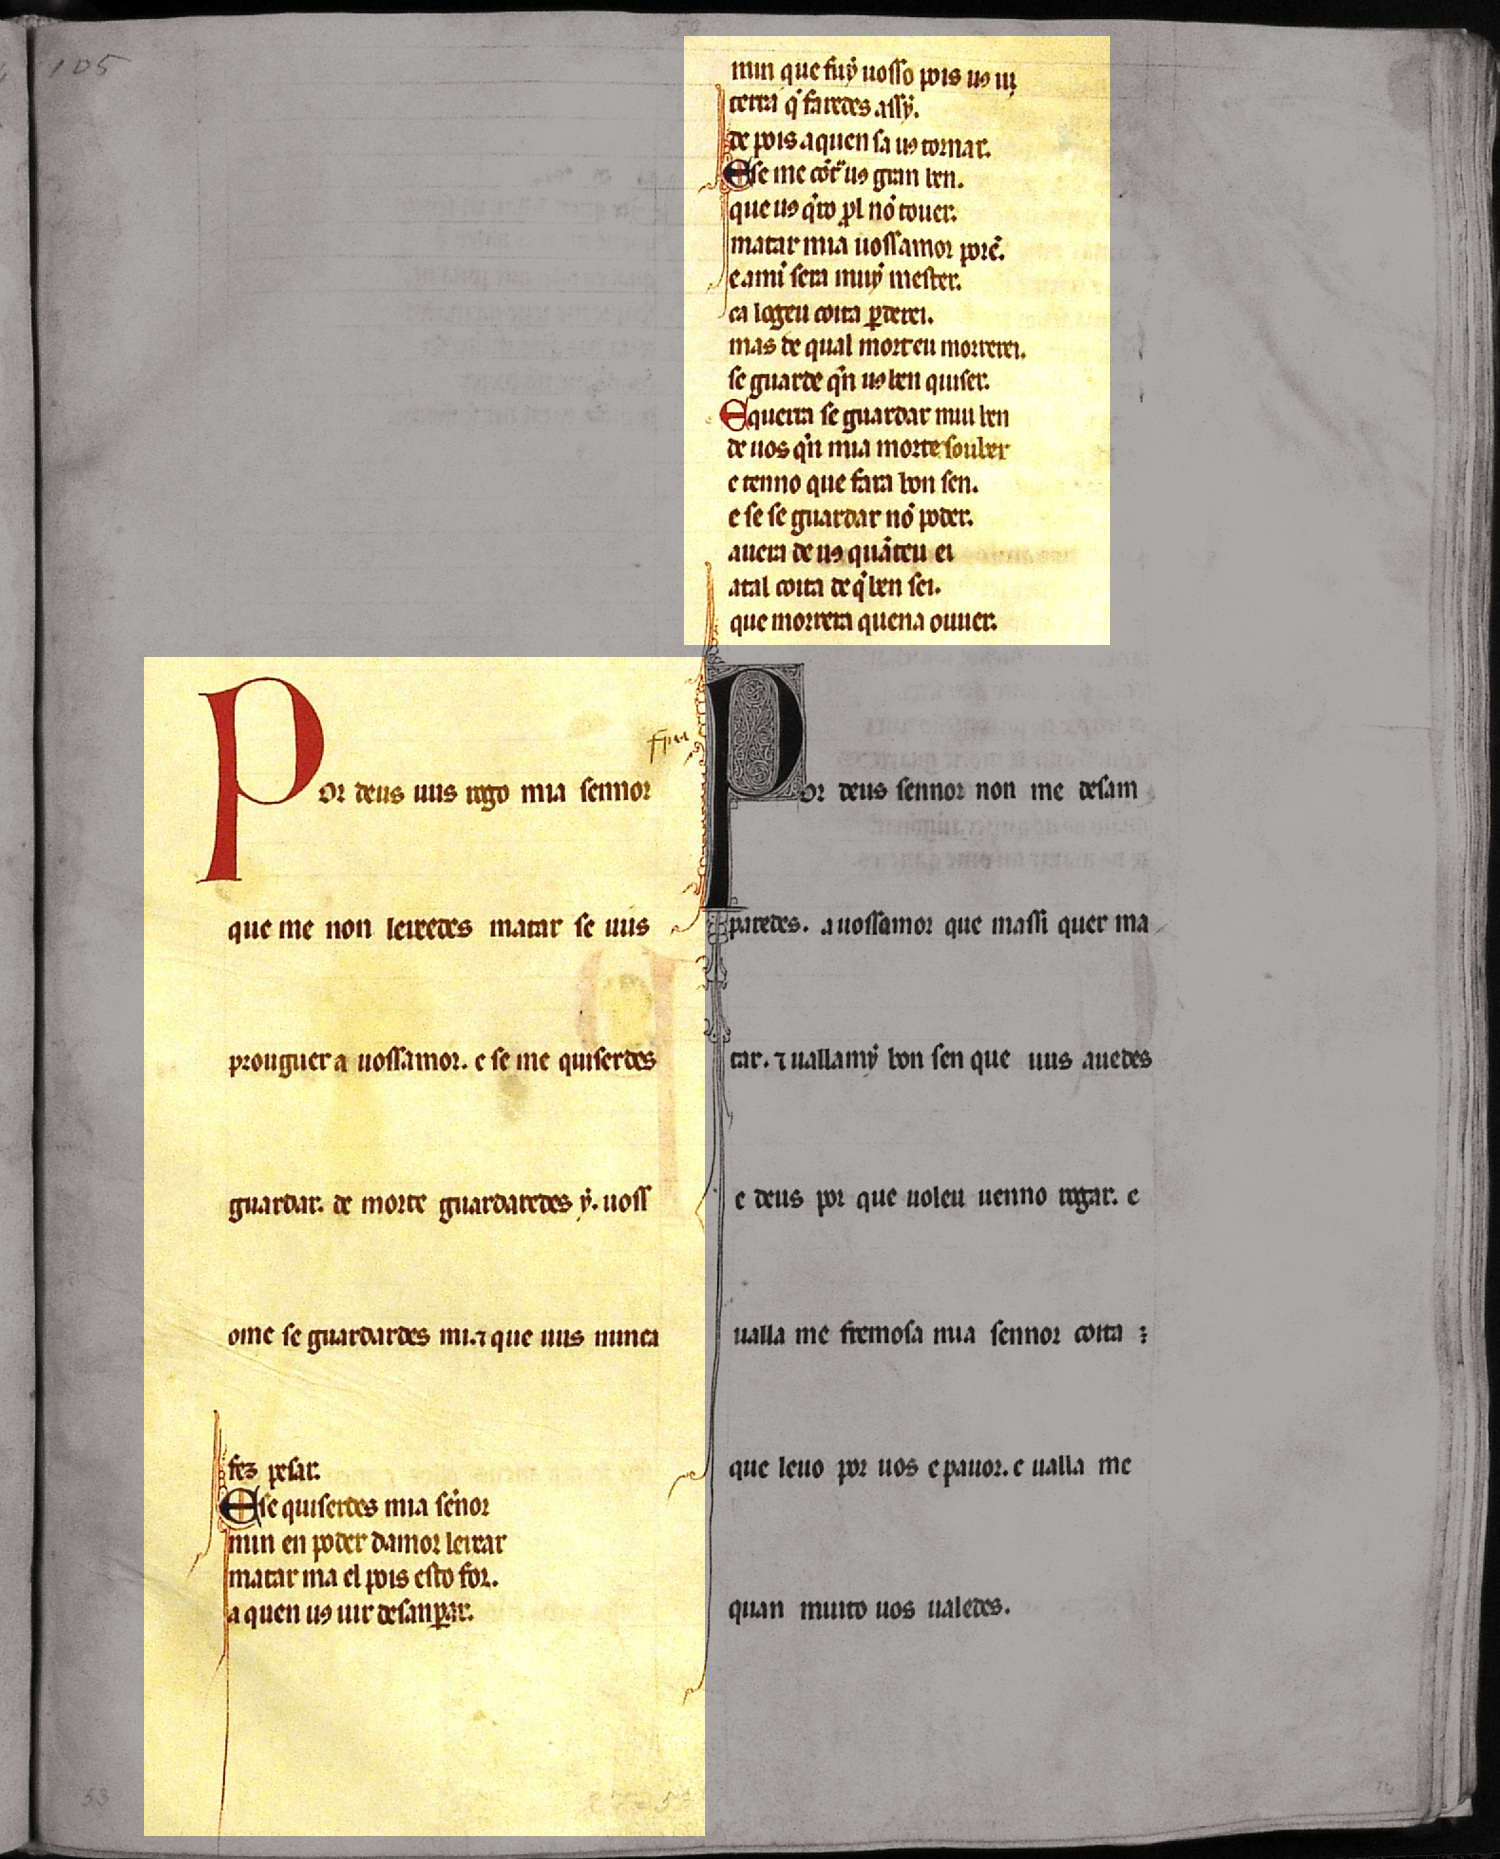 105
Por deus uus rogo mia sennor
fijia
que me non leixedes matar se uus
prouguer a uossamor. e se me quiserdes
guardar. de morte guardaredes ẏ. uoss
ome se guardardes mi. ⁊ que uus nunca
fez pesar.
E se quiserdes mia sẽnor
min en poder damor leixar
matar ma el pois esto for.
a quen uꝯ uir desanꝑar.
min que fuẏ uosso pois uꝯ uẏ
terrá q̃ faredes assẏ.
de pois a quen sa uꝯ tornar.
E se me cõt̃ uꝯ gran ben.
que uꝯ q̃ro ꝑl nõ touer.
matar mia uossamor porẽ.
e a mĩ sera muẏ mester.
ca logeu coita ꝑderei.
mas de qual morteu morrerei.
se guarde qñ uꝯ ben quiser.
E querra se guardar mui ben
de uos qñ mia morte souber
e tenno que fara bon sen.
e se se guardar nõ poder.
auera de uꝯ quãteu ei
atal coita de q̃ ben sei.
que morrera quena ouuer.
Por deus sennor non me desam
paredes. a uossamor que massi quer ma
tar. ⁊ uallamẏ bon sen que uus auedes
e deus por que uoleu uenno rogar. e
ualla me fremosa mia sennor coita ⁊
que leuo por uos e pauor. e ualla me
quan muito uos ualedes.
53